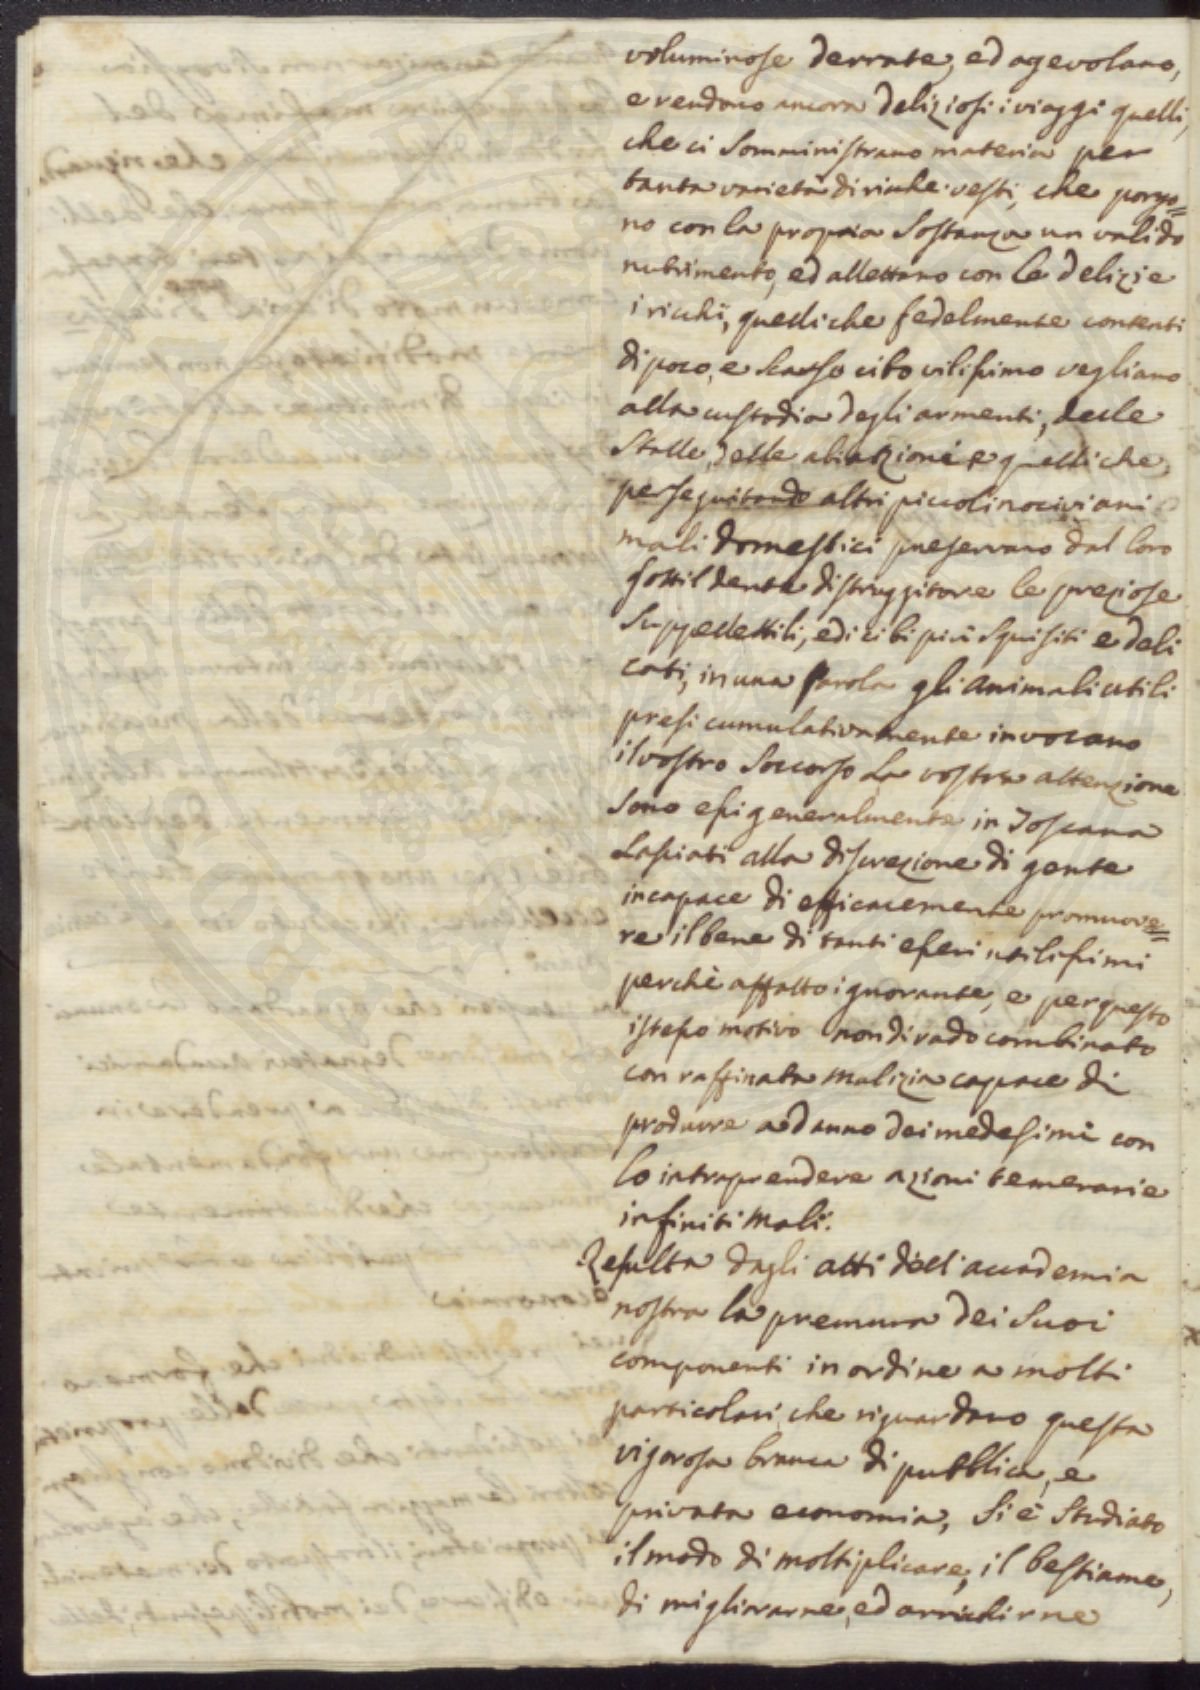 voluminose derrate, ed agevolano,
e rendono ancora deliziosi i viaggi quelli,
che ci somministrano materia per
tanta varietà di ricche vesti, che porgo=
no con la propria sostanza un valido
nutrimento, ed allettano con le delizie
i ricchi, quelli che fedelmente contenti
di poco, e scarso cibo vilissimo vegliano
alla custodia degli armenti, delle
stalle, delle abitazioni e quelli che,
perseguitando altri piccoli nocivi ani
mali domestici preservano dal loro
sottil dente distruggitore le preziose
suppellettili, ed i cibi più squisiti e deli
cati, in una parola gli animali utili
presi cumulativamente invocano
il vostro soccorso la vostra attenzione
Sono essi generalmente in Toscana
Lasciati alla discrezione di gente
incapace di efficacemente promuove=
re il bene di tanti esseri utilissimi
perchè affatto ignorante, e per questo
istesso motivo non di rado combinato
con raffinata malizia capace di
produrre a danno dei medesimi con
lo intraprendere azioni temerarie
infiniti mali.
Resulta dagli atti dell'accademia
nostra la premura dei suoi
componenti in ordine a molti
particolari che riguardano questa
vigorosa branca di pubblica, e
privata economia, Si è studiato
il modo di moltiplicare, il bestiame,
di migliorarne, ed arricchirne